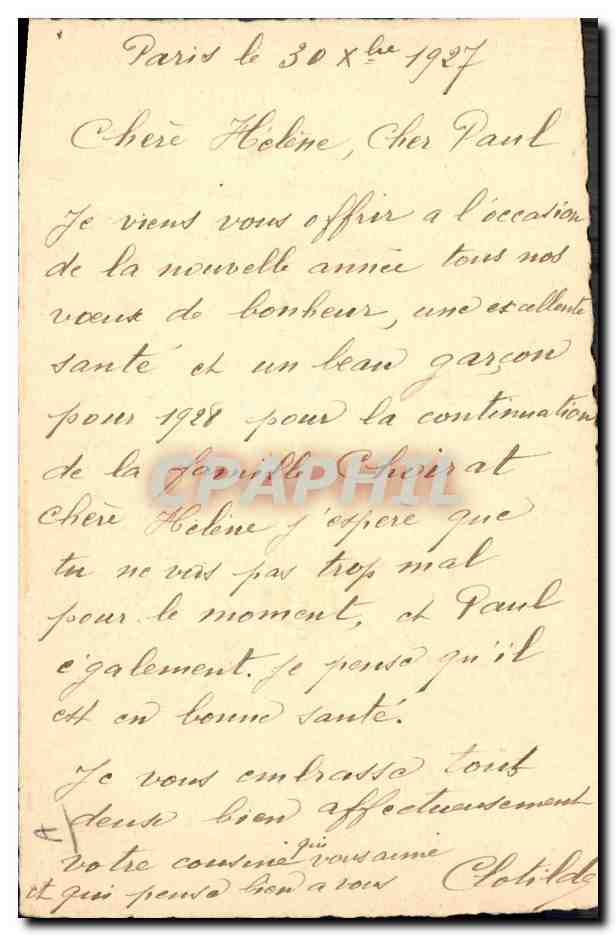 Paris le 30 Xbre 1927
Chère Hélène, Cher Paul
Je viens vous offrir a l'occasion
de la nouvelle année tous nos
vœux de bonheur, une excellente
santé et un beau garçon
pour 1928 pour la continuation
de la famille Choirat
Chère Hélène j'espère que
tu ne vas pas trop mal
pour le moment, et Paul
également. Je pense qu'il
est en bonne santé.
Je vous embrasse tout
deux bien affectueusement
votre cousine qui vous aime
et qui pense bien a vous Clotilde
CPAPHIL